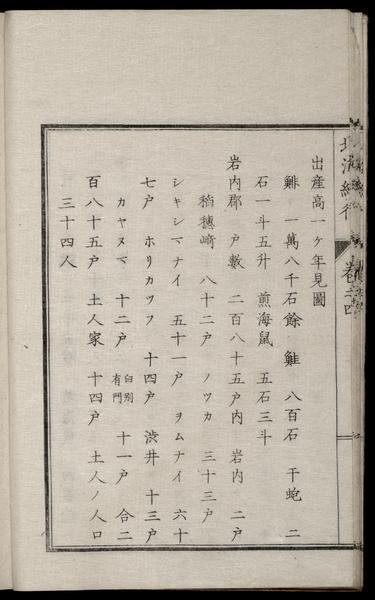 出産高一ヶ年見圖
鯡 一萬八千石餘 鮭 八百石 干鮑 二
石一斗五升 煎海鼠 五石三斗
岩内郡 戸數 二百八十五戸内 岩内 二戸
稻穂﨑 八十二戸 ノツカ 三十三戸
シキシマナイ 五十一戸 ヲムナイ 六十
七戸 ホリカツフ 十四戸 渋井 十三戸
カヤヌマ 十二戸 臼別 有門 十一戸 合二
百八十五戸 土人家 十四戸 土人ノ人口
三十四人